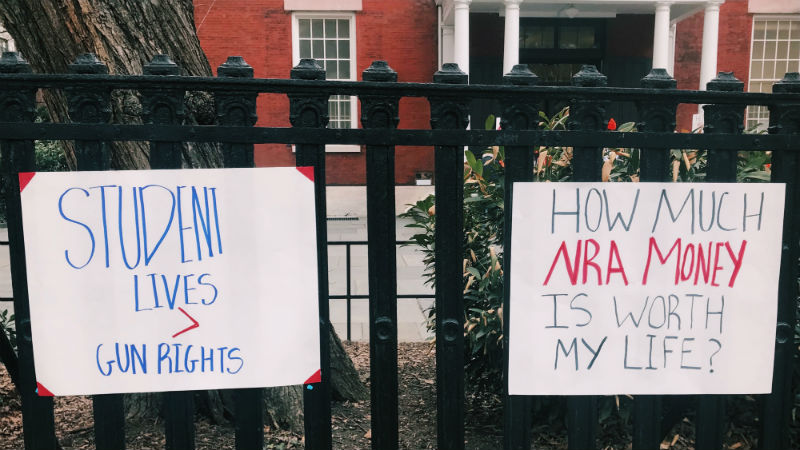 STUDENT
LIVES
>
GUN RIGHTS
HOW MUCH
NRA MONEY
IS WORTH
MY LIFE?